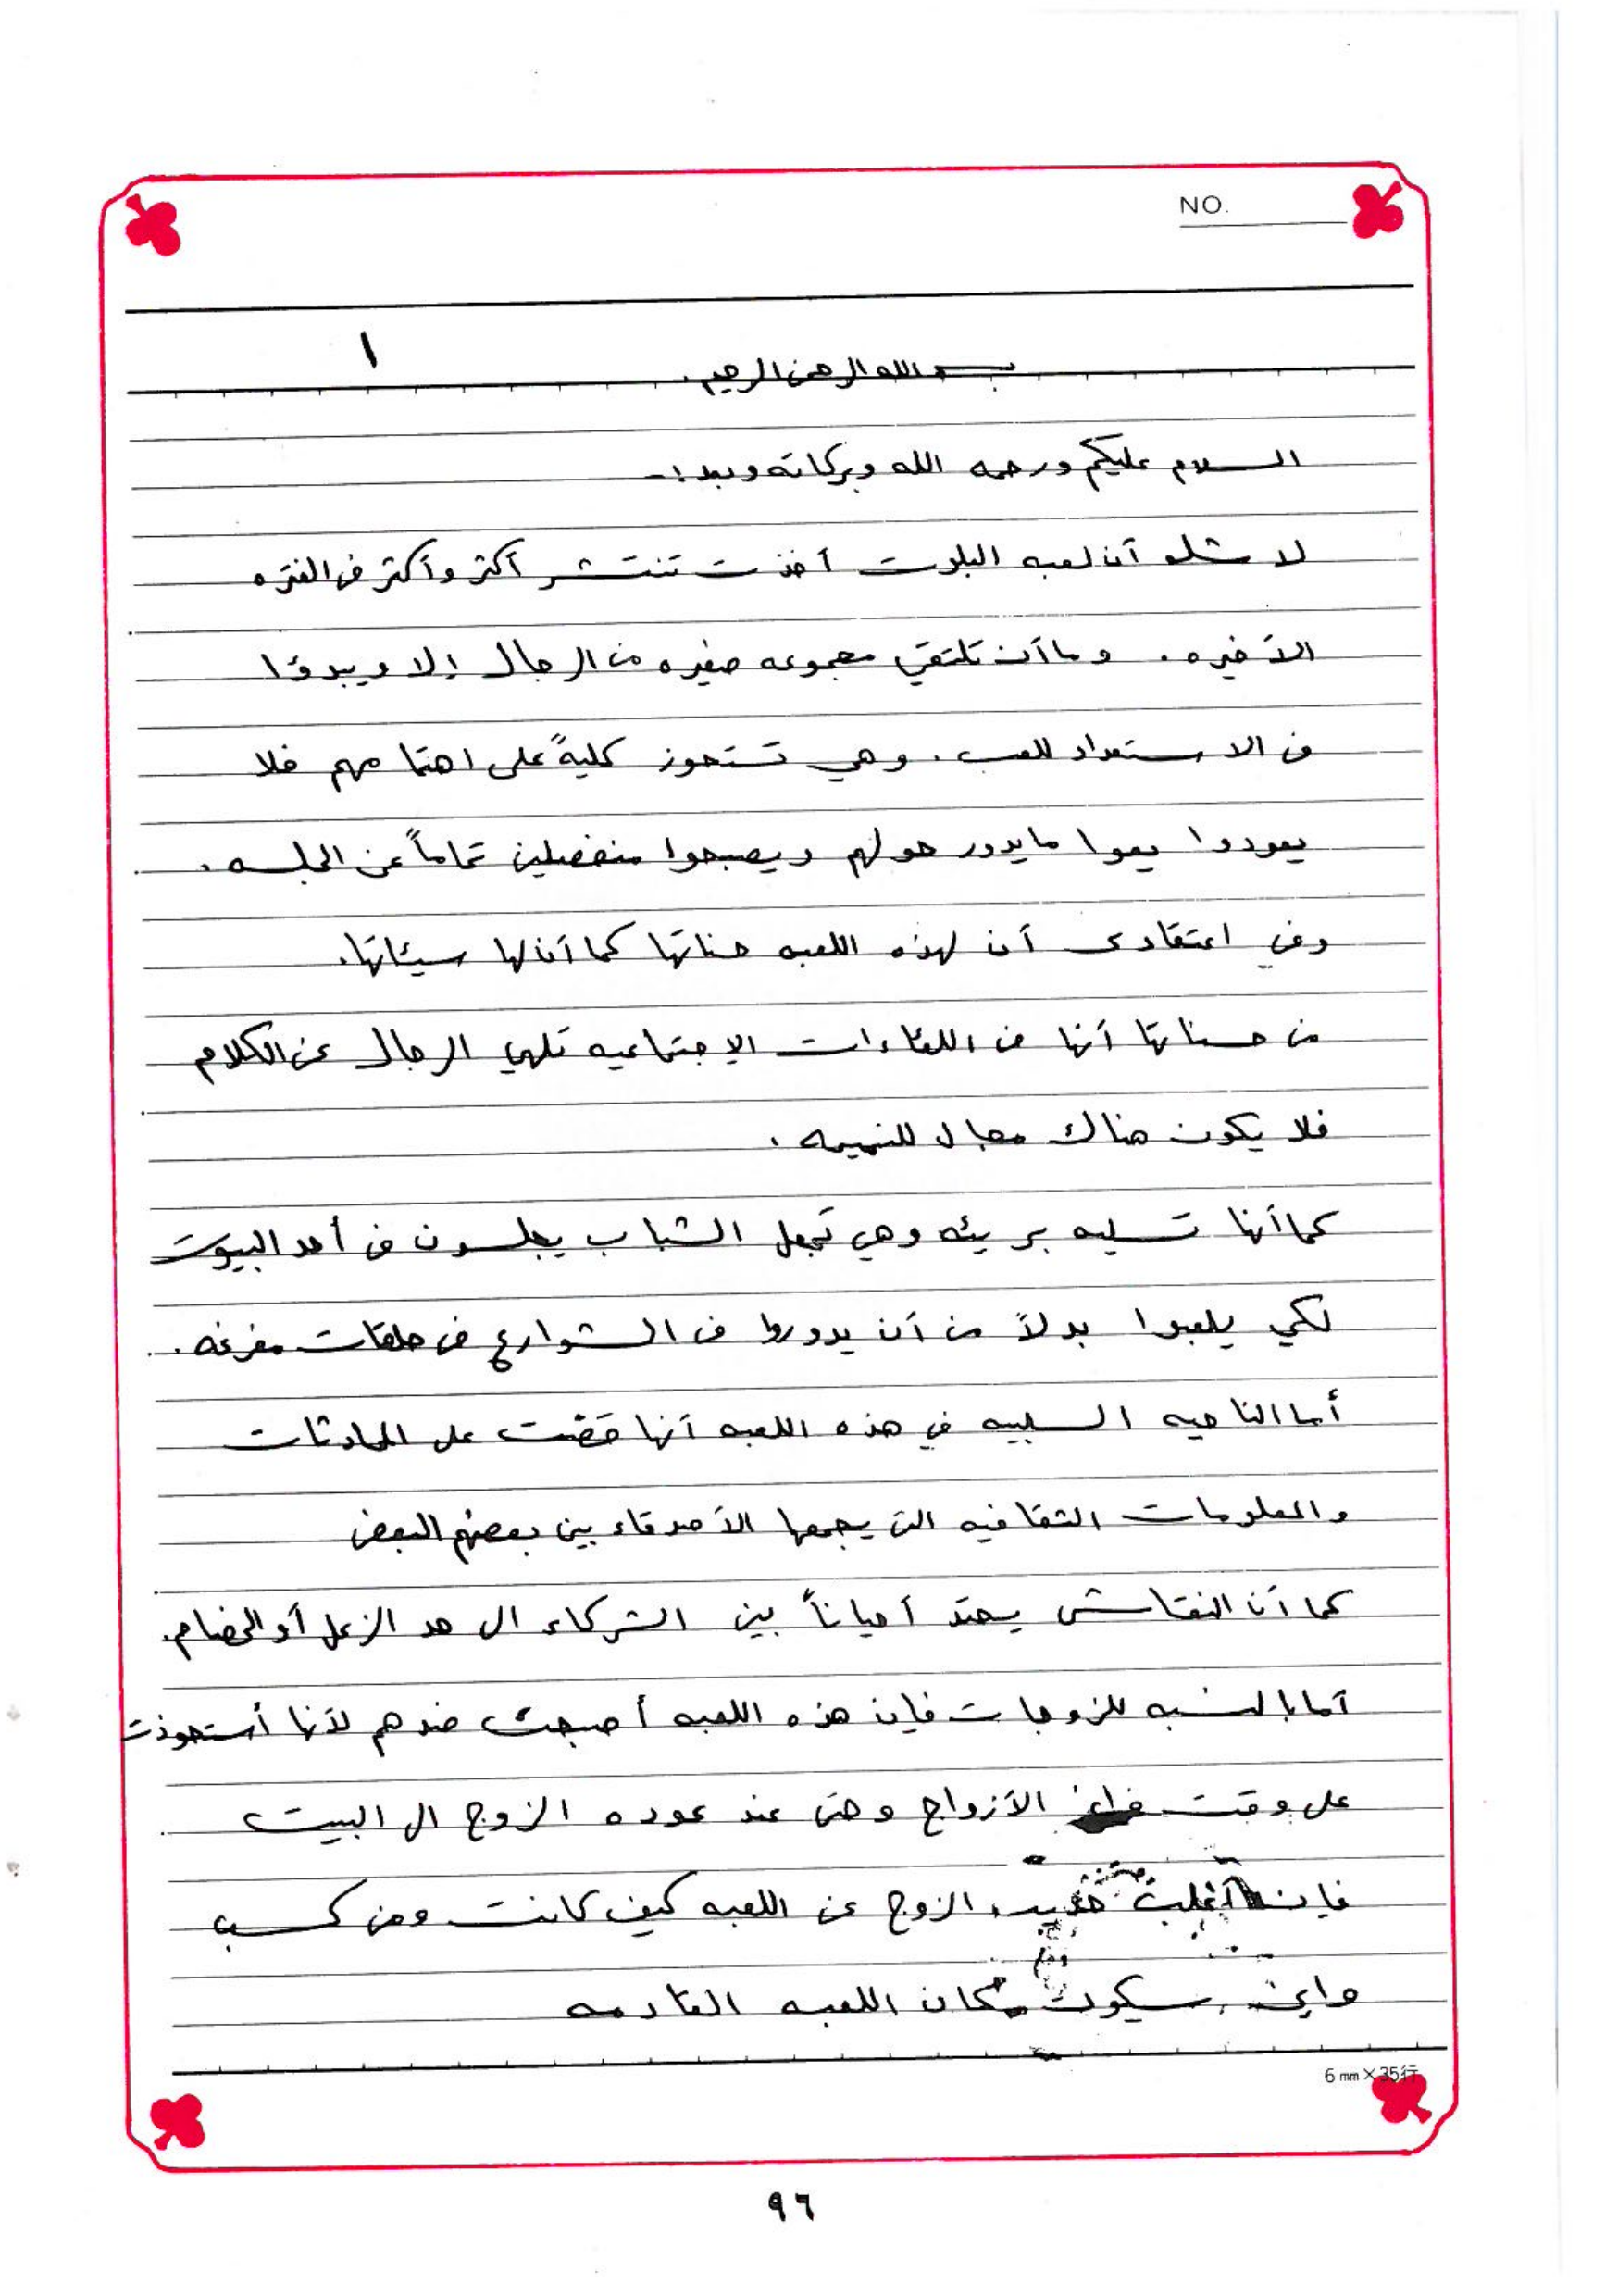 NO.
١
بسم الله الرحمن الرحيم.
السلام عليكم ورحمه الله وبركاته وبعد :-
لا شك أن لعبه البلوت أخذت تنتشر أكثر وأكثر في الفتره
الأخيره . وما أن تلتقي مجموعه صغيره من الرجال إلا ويبدؤا
في الاستعداد للعب . وهي تستحوز كليةً على اهتمامهم فلا
يعودوا يعوا ما يدور حولهم ويصبحوا منفصلين تماماً عن الجلسه .
وفي اعتقادى أن لهذه اللعبه حسناتها كما أن لها سيئاتها .
من حسناتها أنها في اللقاءات الإجتماعيه تلهي الرجال عن الكلام
فلا يكون هناك مجال للنميمه .
كما أنها تسليه بريئه وهي تجعل الشباب يجلسون في أحد البيوت
لكي يلعبوا بدلاً من أن يدوروا في الشوارع في حلقات مفرغه .
أما الناحيه السلبيه في هذه اللعبه أنها قضت على المحادثات
والمعلومات الثقافيه التى يجمعها الأصدقاء بين بعضهم البعض
كما أن النقاش يحتد أحياناً بين الشركاء الى حد الزعل أو الخصام .
أما بالنسبه للزوجات فإن هذه اللعبه أصبحت ضدهم لأنها أستحوذت
على وقت فراغ الأزواج وحتى عند عوده الزوج الى البيت
فإن أغلب حديث الزوج عن اللعبه كيف كانت ومن كسب
واين سيكون مكان اللعبه القادمه
6 mm × 35行
٩٦